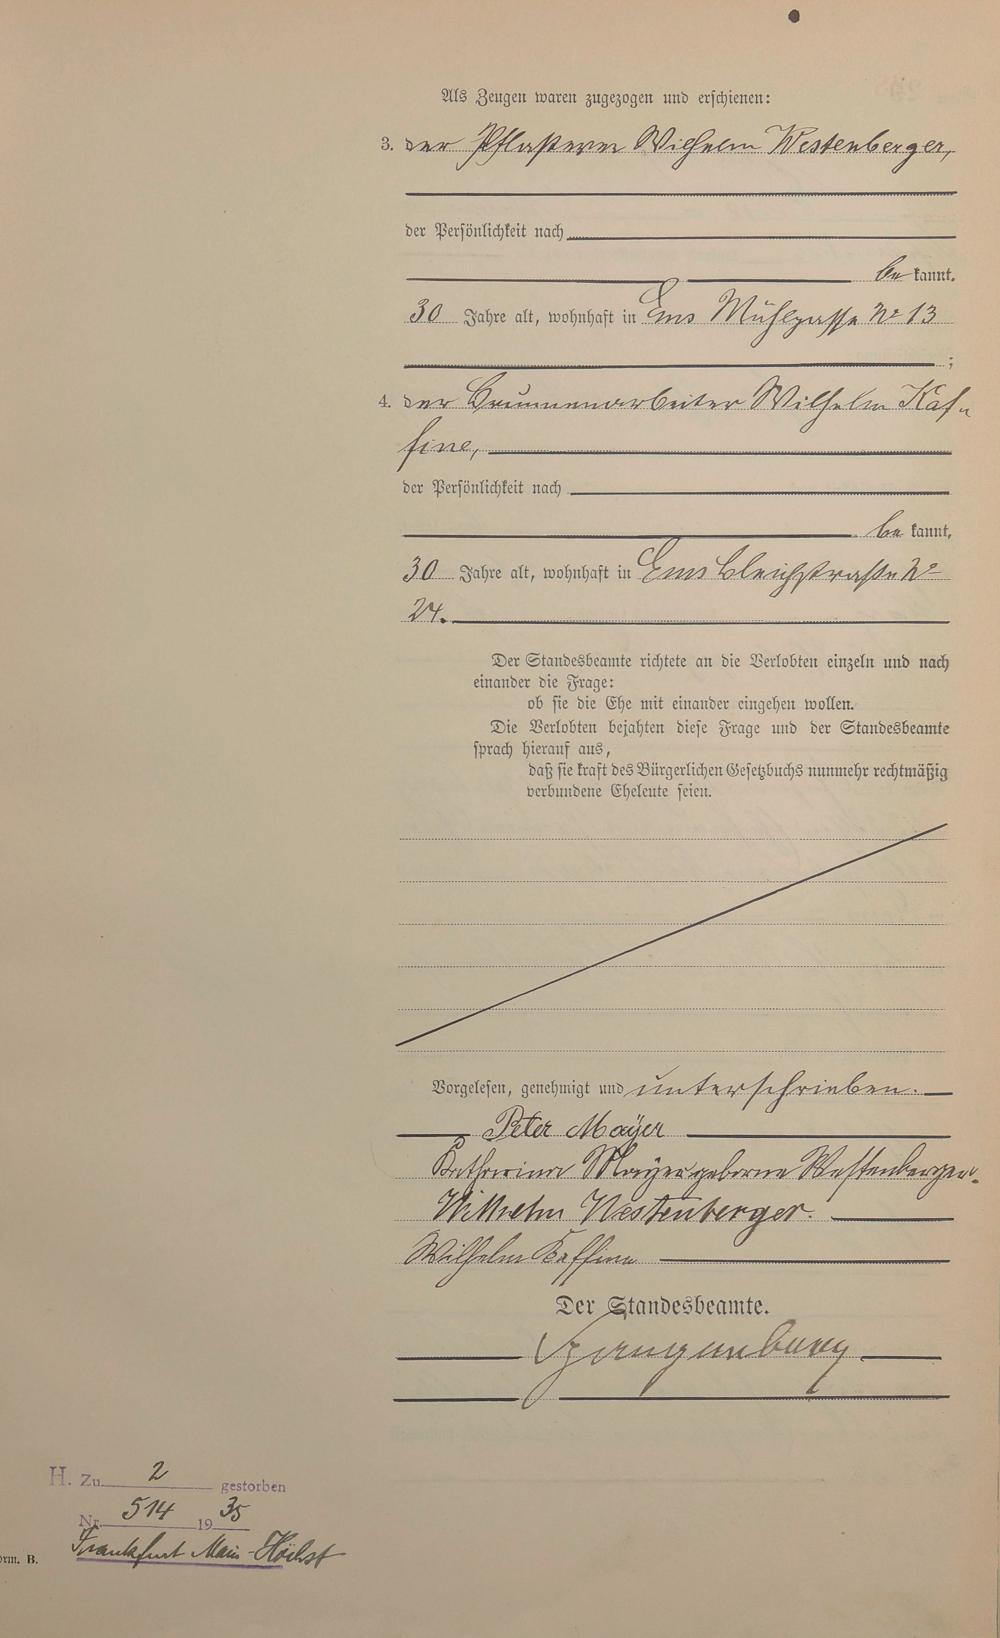 Als Zeugen waren zugezogen und erschienen:
3. der Pflasterer Wilhelm Westenberger,
der Persönlichkeit nach
be kannt,
30 Jahre alt, wohnhaft in Ems Mühlgasse No 13
;
4. der Brunnenarbeiter Wilhelm Kaf-
fine,
der Persönlichkeit nach
be kannt,
30 Jahre alt, wohnhaft in Ems Bleichstraße No
24.
Der Standesbeamte richtete an die Verlobten einzeln und nach
einander die Frage:
ob sie die Ehe mit einander eingehen wollen.
Die Verlobten bejahten diese Frage und der Standesbeamte
sprach hierauf aus,
daß sie kraft des Bürgerlichen Gesetzbuchs nunmehr rechtmäßig
verbundene Eheleute seien.
Vorgelesen, genehmigt und unterschrieben.
Peter Mayer
Katharina Mayer geborne Westenberger.
Wilhelm Westenberger.
Wilhelm Kaffine
Der Standesbeamte.
H. Zu 2 gestorben
Nr. 514 1935
Frankfurt Main-Höchst
orm. B.